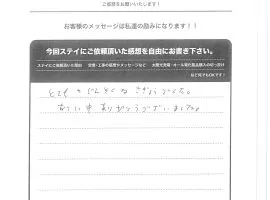 ご感想をお願いいたします！
お客様のメッセージは私達の励みになります！！
今回ステイにご依頼頂いた感想を自由にお書き下さい。
ステイにご依頼頂いた理由　営業・工事の感想やメッセージなど　太陽光発電・オール電化製品購入の切っ掛け
など何でもOKです！
とても
ありがとうございました。